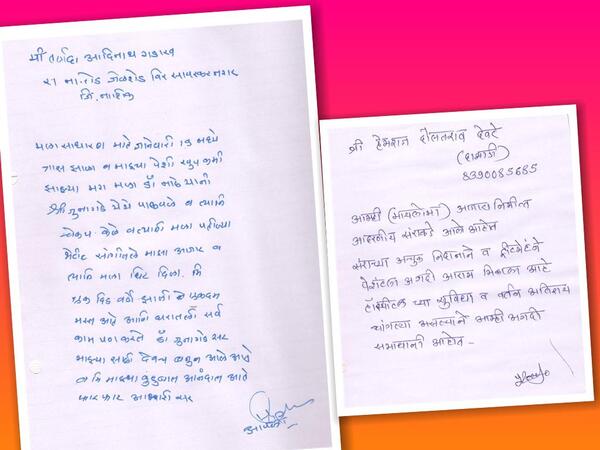 मी वर्षदा आदिनाथ
रा ना.रोड जेलरोड विर सावरकर नगर
जि. नाशिक
मला साधारण माहे जानेवारी 13 मध्ये
त्रास झाला व माझ्या पेशी खुप कमी
झाल्या मग मला डॉ यांनी
येथे पाठवले व त्यांनी
चेकप केले व त्यांनी मला पहील्या
भेटीत सांगीतले माझा आजार व
त्यांनी मला धिर दिला. मि
दिड वर्ष झाली एकदम
मस्त आहे आणि घरातली सर्व
काम पण करते डॉ सर
माझ्या साठी देवच बनुन आले आहे
व मि माझ्या कुंटुबात आनंदात आहे
फार फार आभारी सर
श्री हेमराज दौलतराव देवरे
8390085685
आम्ही (मायलोमा) आजारा निमीत्त
आदरणीय सरांकडे आलो आहोत
सरांच्या अचुक निदानाने व ट्रीटमेंटने
पेशंटला अगदी आराम मिळाला आहे
हॉस्पीटल च्या सुविधा व वर्तन अतिशय
चांगल्या असल्याने आम्ही अगदी
समाधानी आहोत -